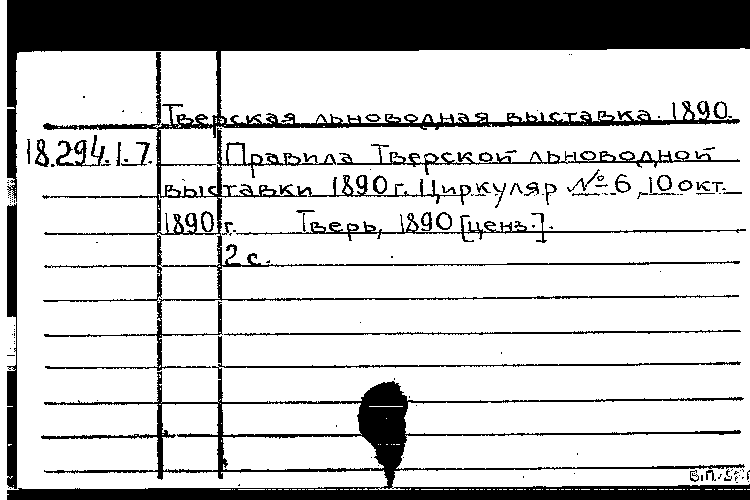 Тверская льноводная выставка. 1890.
18.294.1.7. Правила Тверской льноводной
выставки 1890 г. Циркуляр № 6, 10 окт.
1890 г. Тверь, 1890 [ценз.].
2 с.